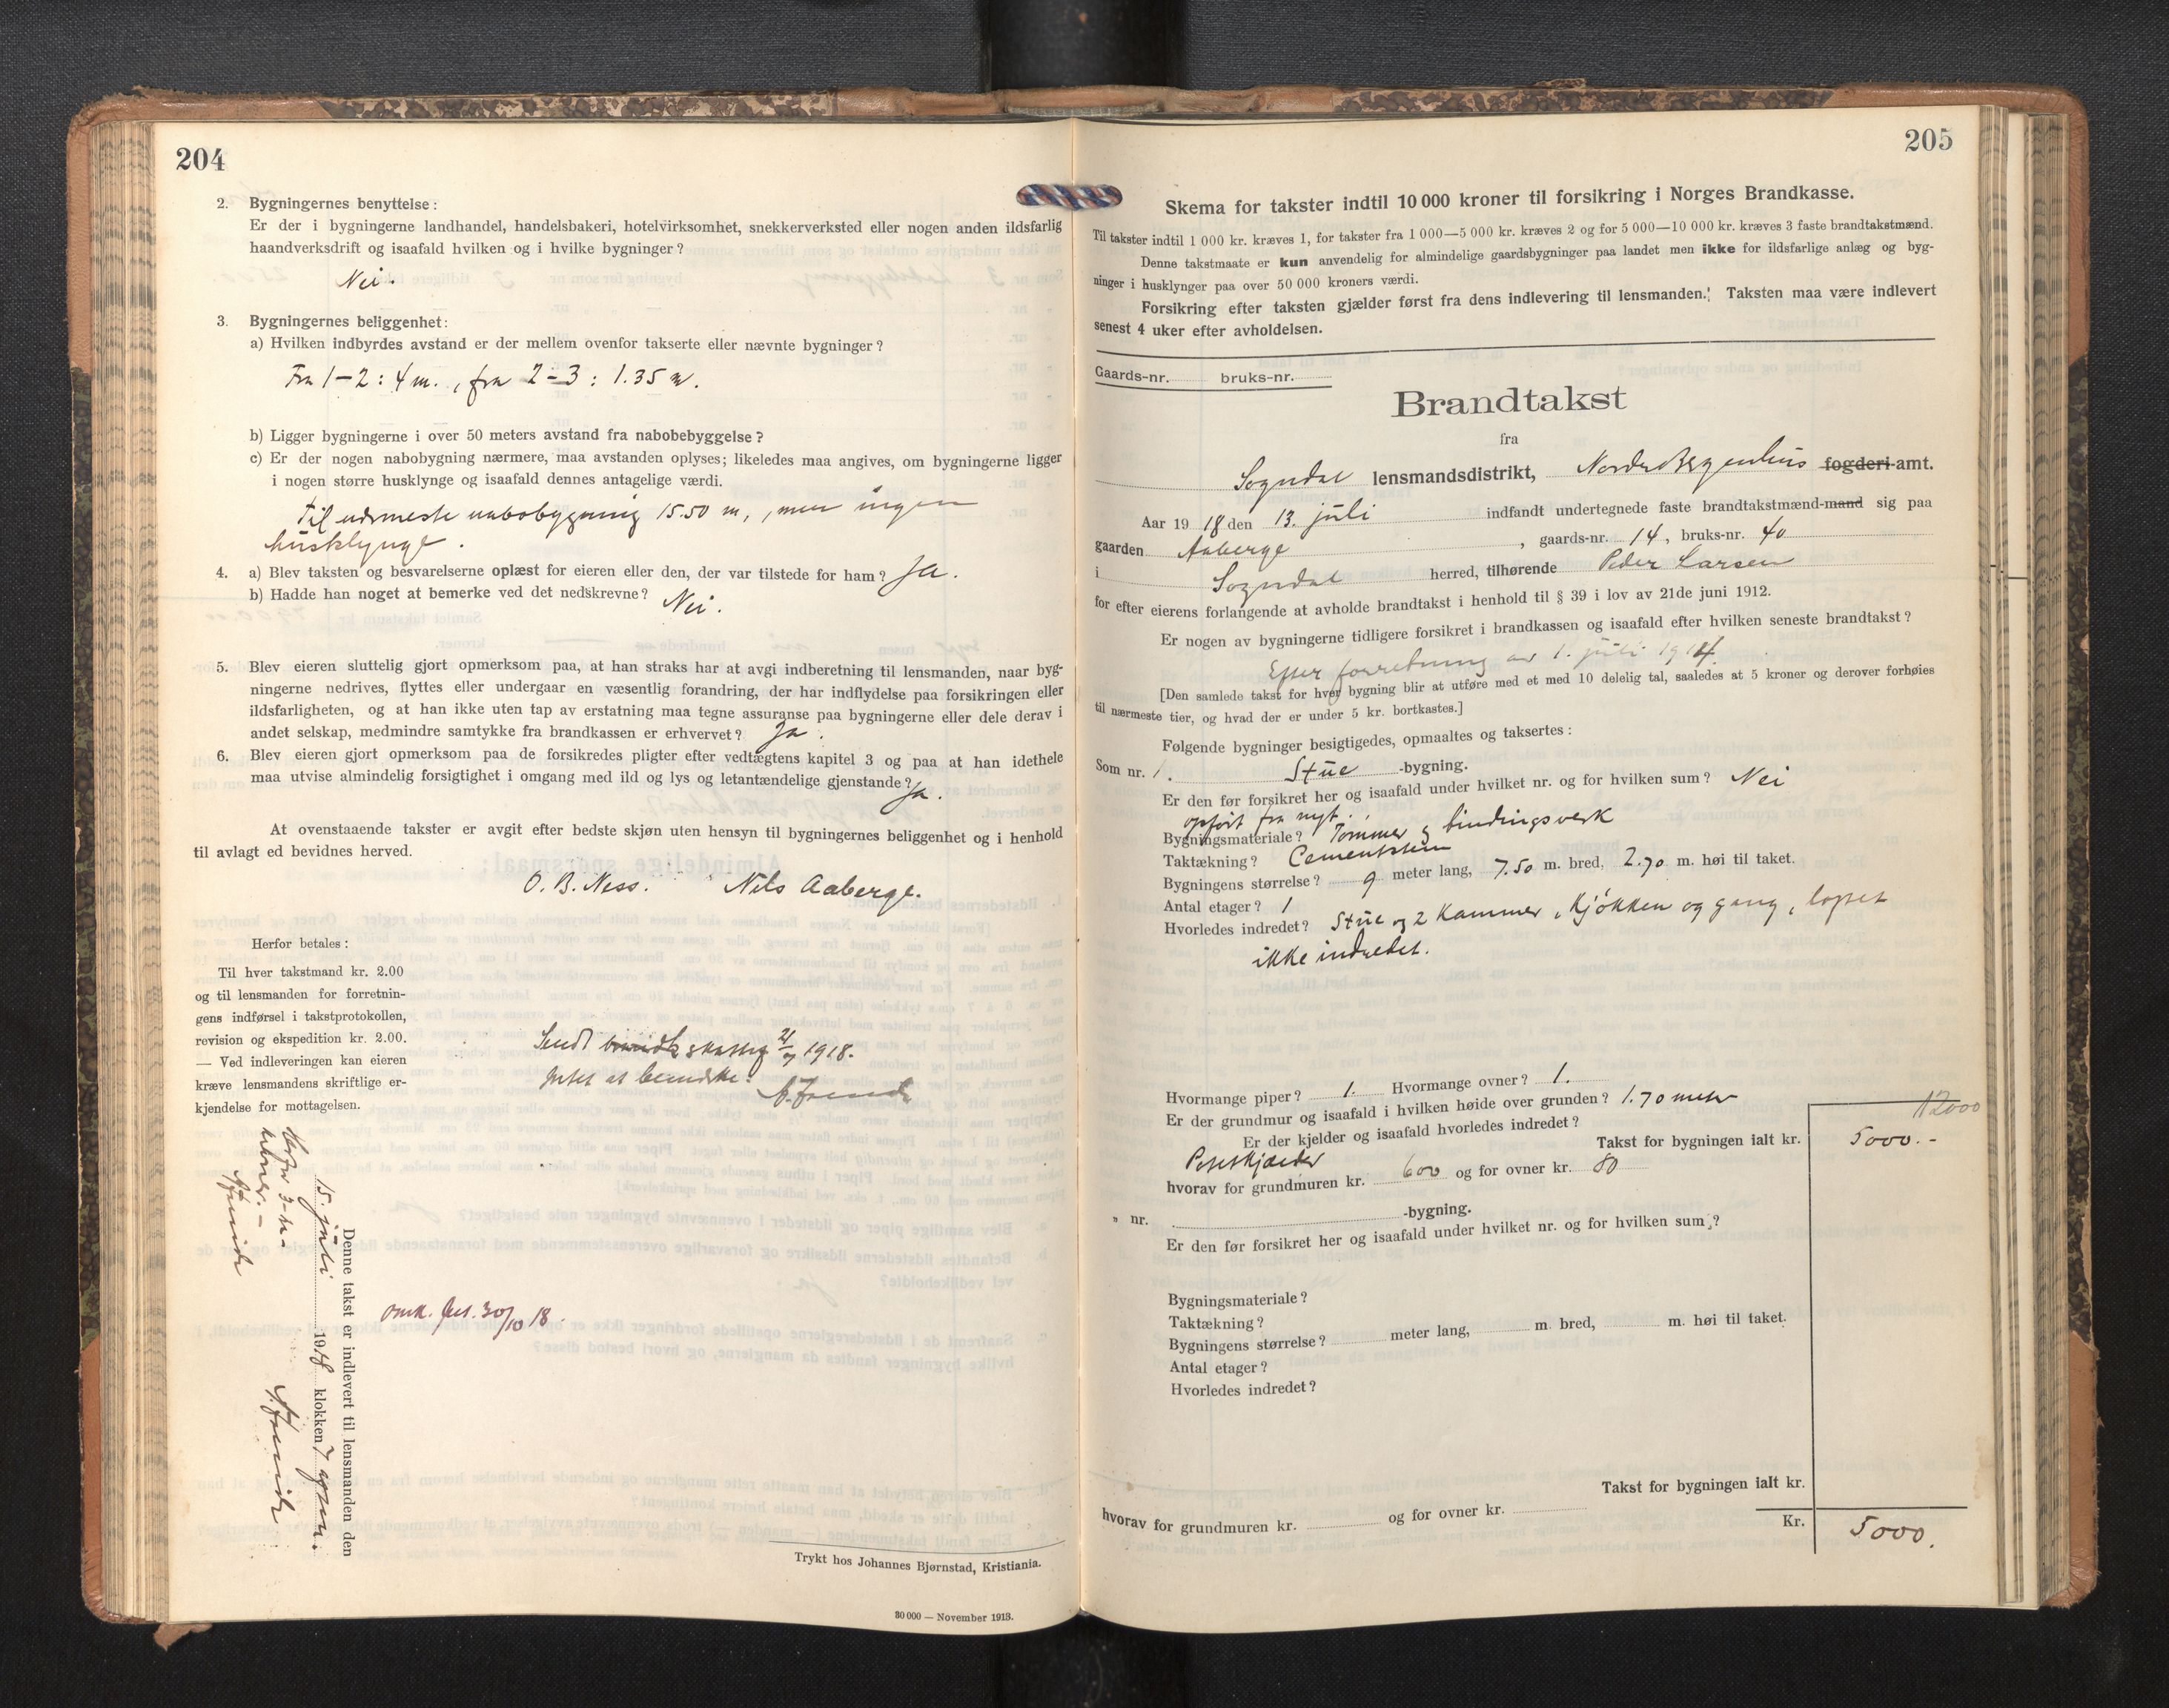 204
2. Bygningernes benyttelse:
Er der i bygningerne landhandel, handelsbakeri, hotelvirksomhet, snekkerverksted eller nogen anden ildsfarlig
haandverksdrift og isaafald hvilken og i hvilke bygninger?
Nei.
3. Bygningernes beliggenhet:
a) Hvilken indbyrdes avstand er der mellem ovenfor takserte eller nævnte bygninger?
Fra 1-2: 4 m., fra 2-3: 1.35 m.
b) Ligger bygningerne i over 50 meters avstand fra nabobebyggelse?
c) Er der nogen nabobygning nærmere, maa avstanden oplyses; likeledes maa angives, om bygningerne ligger
i nogen større husklynge og isaafald dennes antagelige værdi.
Til nærmeste nabobygning 15.50 m, , men ingen
husklynge.
4. a) Blev taksten og besvarelserne oplæst for eieren eller den, der var tilstede for ham? Ja.
b) Hadde han noget at bemerke ved det nedskrevne? Nei.
5. Blev eieren sluttelig gjort opmerksom paa, at han straks har at avgi indberetning til lensmanden, naar byg-
ningerne nedrives, flyttes eller undergaar en væsentlig forandring, der har indflydelse paa forsikringen eller
ildsfarligheten, og at han ikke uten tap av erstatning maa tegne assuranse paa bygningerne eller dele derav i
andet selskap, medmindre samtykke fra brandkassen er erhvervet? Ja.
6. Blev eieren gjort opmerksom paa de forsikredes pligter efter vedtægtens kapitel 3 og paa at han idethele
maa utvise almindelig forsigtighet i omgang med ild og lys og letantændelige gjenstande? Ja.
At ovenstaaende takster er avgit efter bedste skjøn uten hensyn til bygningernes beliggenhet og i henhold
til avlagt ed bevidnes herved.
O. B. Ness. Nils Aaberge.
Herfor betales:
Til hver takstmand kr. 2.00
og til lensmanden for forretnin-
gens indførsel i takstprotokollen,
revision og ekspedition kr. 2.00.
— Ved indleveringen kan eieren
kræve lensmandens skriftlige er-
kjendelse for mottagelsen.
Sendt 1918.
Intet at bemerke.
Denne takst er indlevert til lensmanden den
15. juli 1918 klokken 7
30/10 18.
Trykt hos Johannes Bjørnstad, Kristiania.
30 000 — November 1913.
205
Skema for takster indtil 10 000 kroner til forsikring i Norges Brandkasse.
Til takster indtil 1 000 kr. kræves 1, for takster fra 1 000—5 000 kr. kræves 2 og for 5 000—10 000 kr. kræves 3 faste brandtakstmænd.
Denne takstmaate er kun anvendelig for almindelige gaardsbygninger paa landet men ikke for ildsfarlige anlæg og byg-
ninger i husklynger paa over 50 000 kroners værdi.
Forsikring efter taksten gjælder først fra dens indlevering til lensmanden. Taksten maa være indlevert
senest 4 uker efter avholdelsen.
Gaards-nr. bruks-nr.
Brandtakst
fra
Sogndal lensmandsdistrikt, Nordre Bergenhus fogderi-amt.
Aar 1918 den 13. juli indfandt undertegnede faste brandtakstmænd-mand sig paa
gaarden Aaberge, gaards-nr. 14, bruks-nr. 40
i Sogndal herred, tilhørende Peder Larsen
for efter eierens forlangende at avholde brandtakst i henhold til § 39 i lov av 21de juni 1912.
Er nogen av bygningerne tidligere forsikret i brandkassen og isaafald efter hvilken seneste brandtakst?
Efter forretning av 1. juli 1914.
[Den samlede takst for hver bygning blir at utføre med et med 10 delelig tal, saaledes at 5 kroner og derover forhøies
til nærmeste tier, og hvad der er under 5 kr. bortkastes.]
Følgende bygninger besigtigedes, opmaaltes og taksertes:
Som nr. 1. Stue -bygning.
Er den før forsikret her og isaafald under hvilket nr. og for hvilken sum? Nei
opført fra nyt.
Bygningsmateriale? Tømmer og bindingsverk
Taktækning? Cementsten
Bygningens størrelse? 9 meter lang, 7.50 m. bred, 2.70 m. høi til taket.
Antal etager? 1
Hvorledes indredet? Stue og 2 kammer, kjøkken og gang, loftet
ikke indredet.
Hvormange piper? 1. Hvormange ovner? 1.
Er der grundmur og isaafald i hvilken høide over grunden? 1.70 meter
12000
Er der kjelder og isaafald hvorledes indredet? Takst for bygningen ialt kr. 5000.-
Potetkjælder
hvorav for grundmuren kr. 600 og for ovner kr. 80
„ nr. -bygning.
Er den før forsikret her og isaafald under hvilket nr. og for hvilken sum?
Bygningsmateriale?
Taktækning?
Bygningens størrelse? meter lang, m. bred, m. høi til taket.
Antal etager?
Hvorledes indredet?
Takst for bygningen ialt kr.
hvorav for grundmuren kr. og for ovner kr.
Kr. 5000.